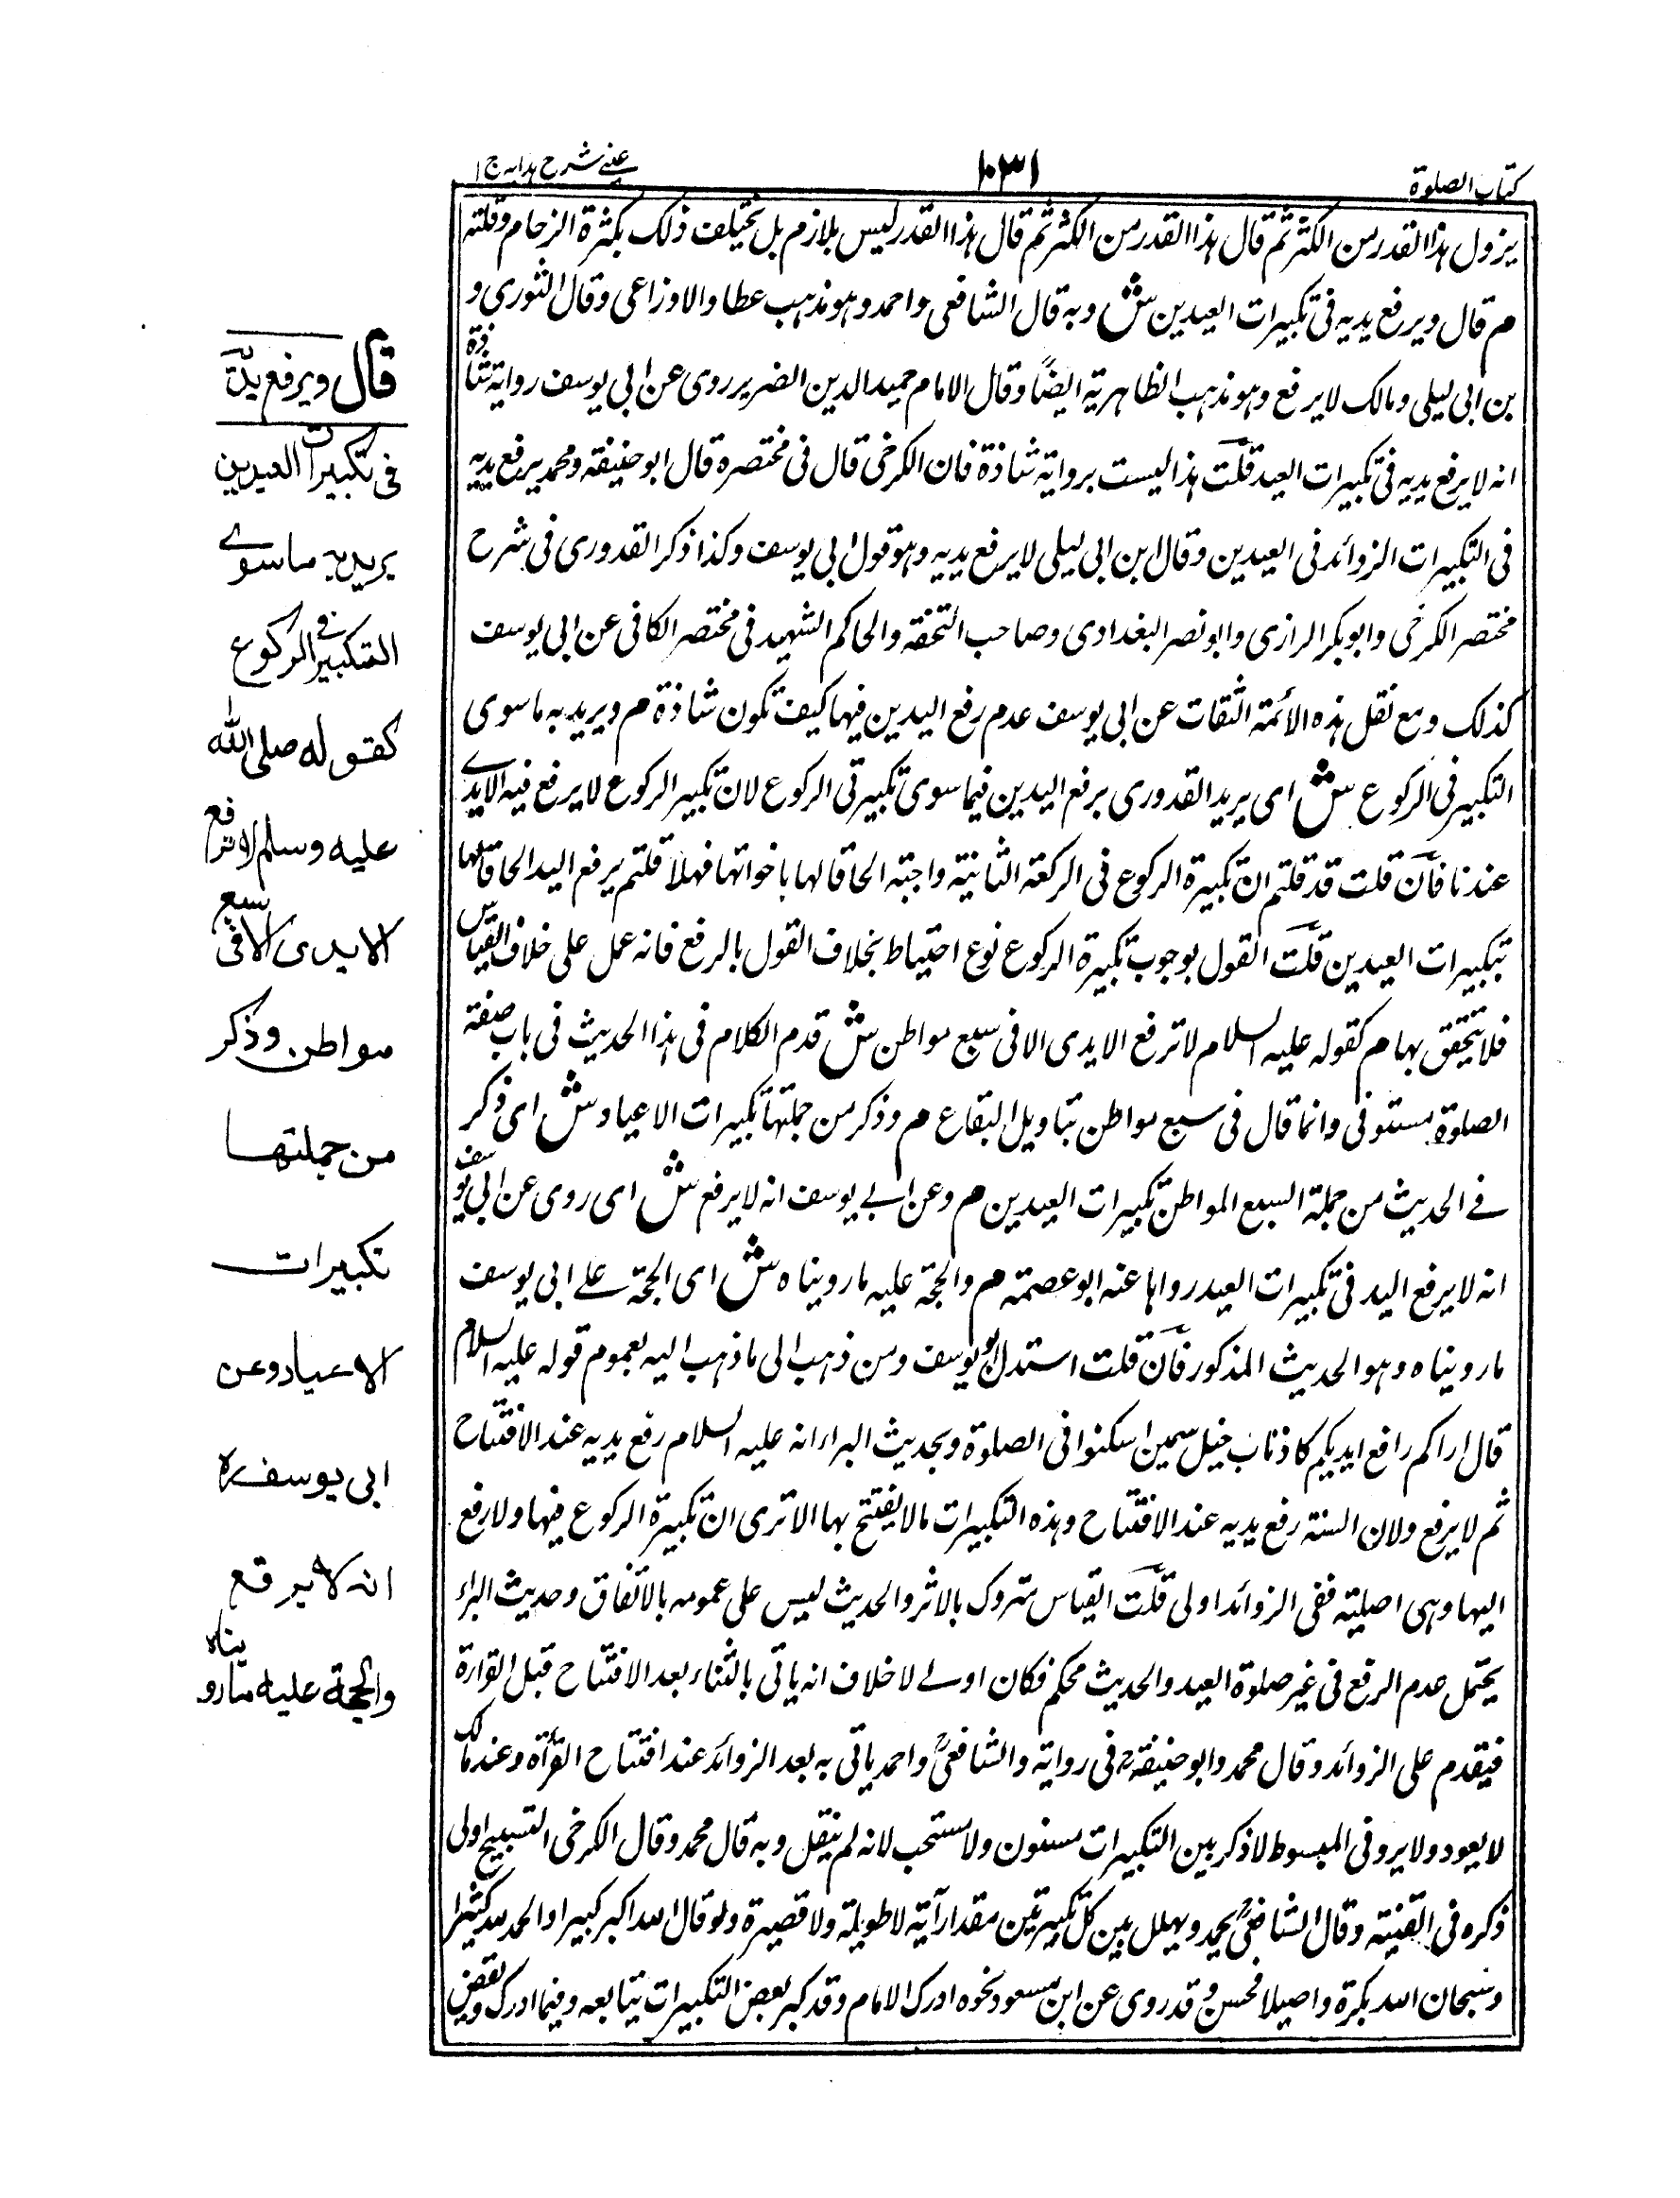 كتاب الصلوة
١٠٣١
عينى شرح هدايه ج ١
يزول هذا القدر من الكثر ثم قال هذا القدر من الكثر ثم قال هذا القدر ليس بلازم بل يختلف ذلك بكثرة الزحام وقلته
م قال ويرفع يديه فى تكبيرات العيدين ش وبه قال الشافعى واحمد وهو مذهب عطا والاوزاعى وقال الثورى و
بن ابى ليلى ومالك لا يرفع وهو مذهب الظاهرية ايضًا وقال الامام حميد الدين الضرير روى عن ابى يوسف رواية شاذة
انه لا يرفع يديه فى تكبيرات العيد قلت هذا ليست برواية شاذة فان الكرخى قال فى مختصره قال ابو حنيفة ومحمد يرفع يديه
فى التكبيرات الزوائد فى العيدين وقال ابن ابى ليلى لا يرفع يديه وهو قول ابى يوسف وكذا ذكر القدورى فى شرح
مختصر الكرخى وابو بكر الرازى وابو نصر البغدادى وصاحب التحفة والحاكم الشهيد فى مختصر الكافى عن ابى يوسف
كذلك ومع نقل هذه الائمة الثقات عن ابى يوسف عدم رفع اليدين فيها كيف تكون شاذة م ويريد به ما سوى
التكبير فى الركوع ش اى يريد القدورى برفع اليدين فيما سوى تكبيرتى الركوع لان تكبير الركوع لا يرفع فيه الايدے
عندنا فان قلت قد قلتم ان تكبيرة الركوع فى الركعة الثانية واجبة الحاقا لها باخواتها فهلا قلتم يرفع اليد الحاقا لها
بتكبيرات العيدين قلت القول بوجوب تكبيرة الركوع نوع احتياط بخلاف القول بالرفع فانه عمل على خلاف القياس
فلا يتحقق بها م كقوله عليه السلام لا ترفع الايدى الا فى سبع مواطن ش قدم الكلام فى هذا الحديث فى باب صفة
الصلوة مستوفى وانما قال فى سبع مواطن بتاويل البقاع م وذكر من جملتها تكبيرات الاعياد ش اى ذكر
فے الحديث من جملة السبع المواطن تكبيرات العيدين م وعن ابے يوسف انه لا يرفع ش اى روى عن ابى يوسف
انه لا يرفع اليد فى تكبيرات العيد رواها عنه ابو عصمة م والحجة عليه ما رويناه ش اى الحجة علے ابى يوسف
ما رويناه وهو الحديث المذكور فان قلت استدل ابو يوسف ومن ذهب الى ما ذهب اليه بعموم قوله عليه السلام
قال اراكم رافع ايديكم كاذناب خيل سمين اسكنوا فى الصلوة وبحديث البراء انه عليه السلام رفع يديه عند الافتتاح
ثم لا يرفع ولان السنة رفع يديه عند الافتتاح وهذه التكبيرات مالا يفتتح بها الا ترى ان تكبيرة الركوع فيها ولا رفع
اليها وهى اصلية ففى الزوائد اولى قلت القياس متروك بالاثر والحديث ليس على عمومه بالاتفاق وحديث البراء
يحتمل عدم الرفع فى غير صلوة العيد والحديث محكم فكان اولے لا خلاف انه ياتى بالثناء بعد الافتتاح قبل القراءة
فيقدم على الزوائد وقال محمد وابو حنيفة فى رواية والشافعى واحمد ياتى به بعد الزوائد عند افتتاح القرأة وعند مالك
لا يعود ولا يرو فى المبسوط لا ذكر بين التكبيرات مسنون ولا مستحب لانه لم ينقل وبه قال محمد وقال الكرخى التسبيح اولى
ذكره فى القنية وقال الشافعى يحمد ويهلل بين كل تكبيرتين مقدار آية لا طويلة ولا قصيرة ولو قال الله اكبر كبيرا والحمد لله كثيرا
وسبحان الله بكرة واصيلا فحسن وقد روى عن ابن مسعود نحوه ادرك الامام وقد كبر بعض التكبيرات يتابعه وفيما ادرك ويقضى
قال ويرفع يديه
فى تكبيرات العيدين
يريد به ما سوے
التكبير فى الركوع
كقوله صلى الله
عليه وسلم لا ترفع
الايدى الا فى سبع
مواطن وذكر
من جملتها
تكبيرات
الاعياد وعن
ابى يوسف ره
انه لا يرفع
والحجة عليه ما رويناه